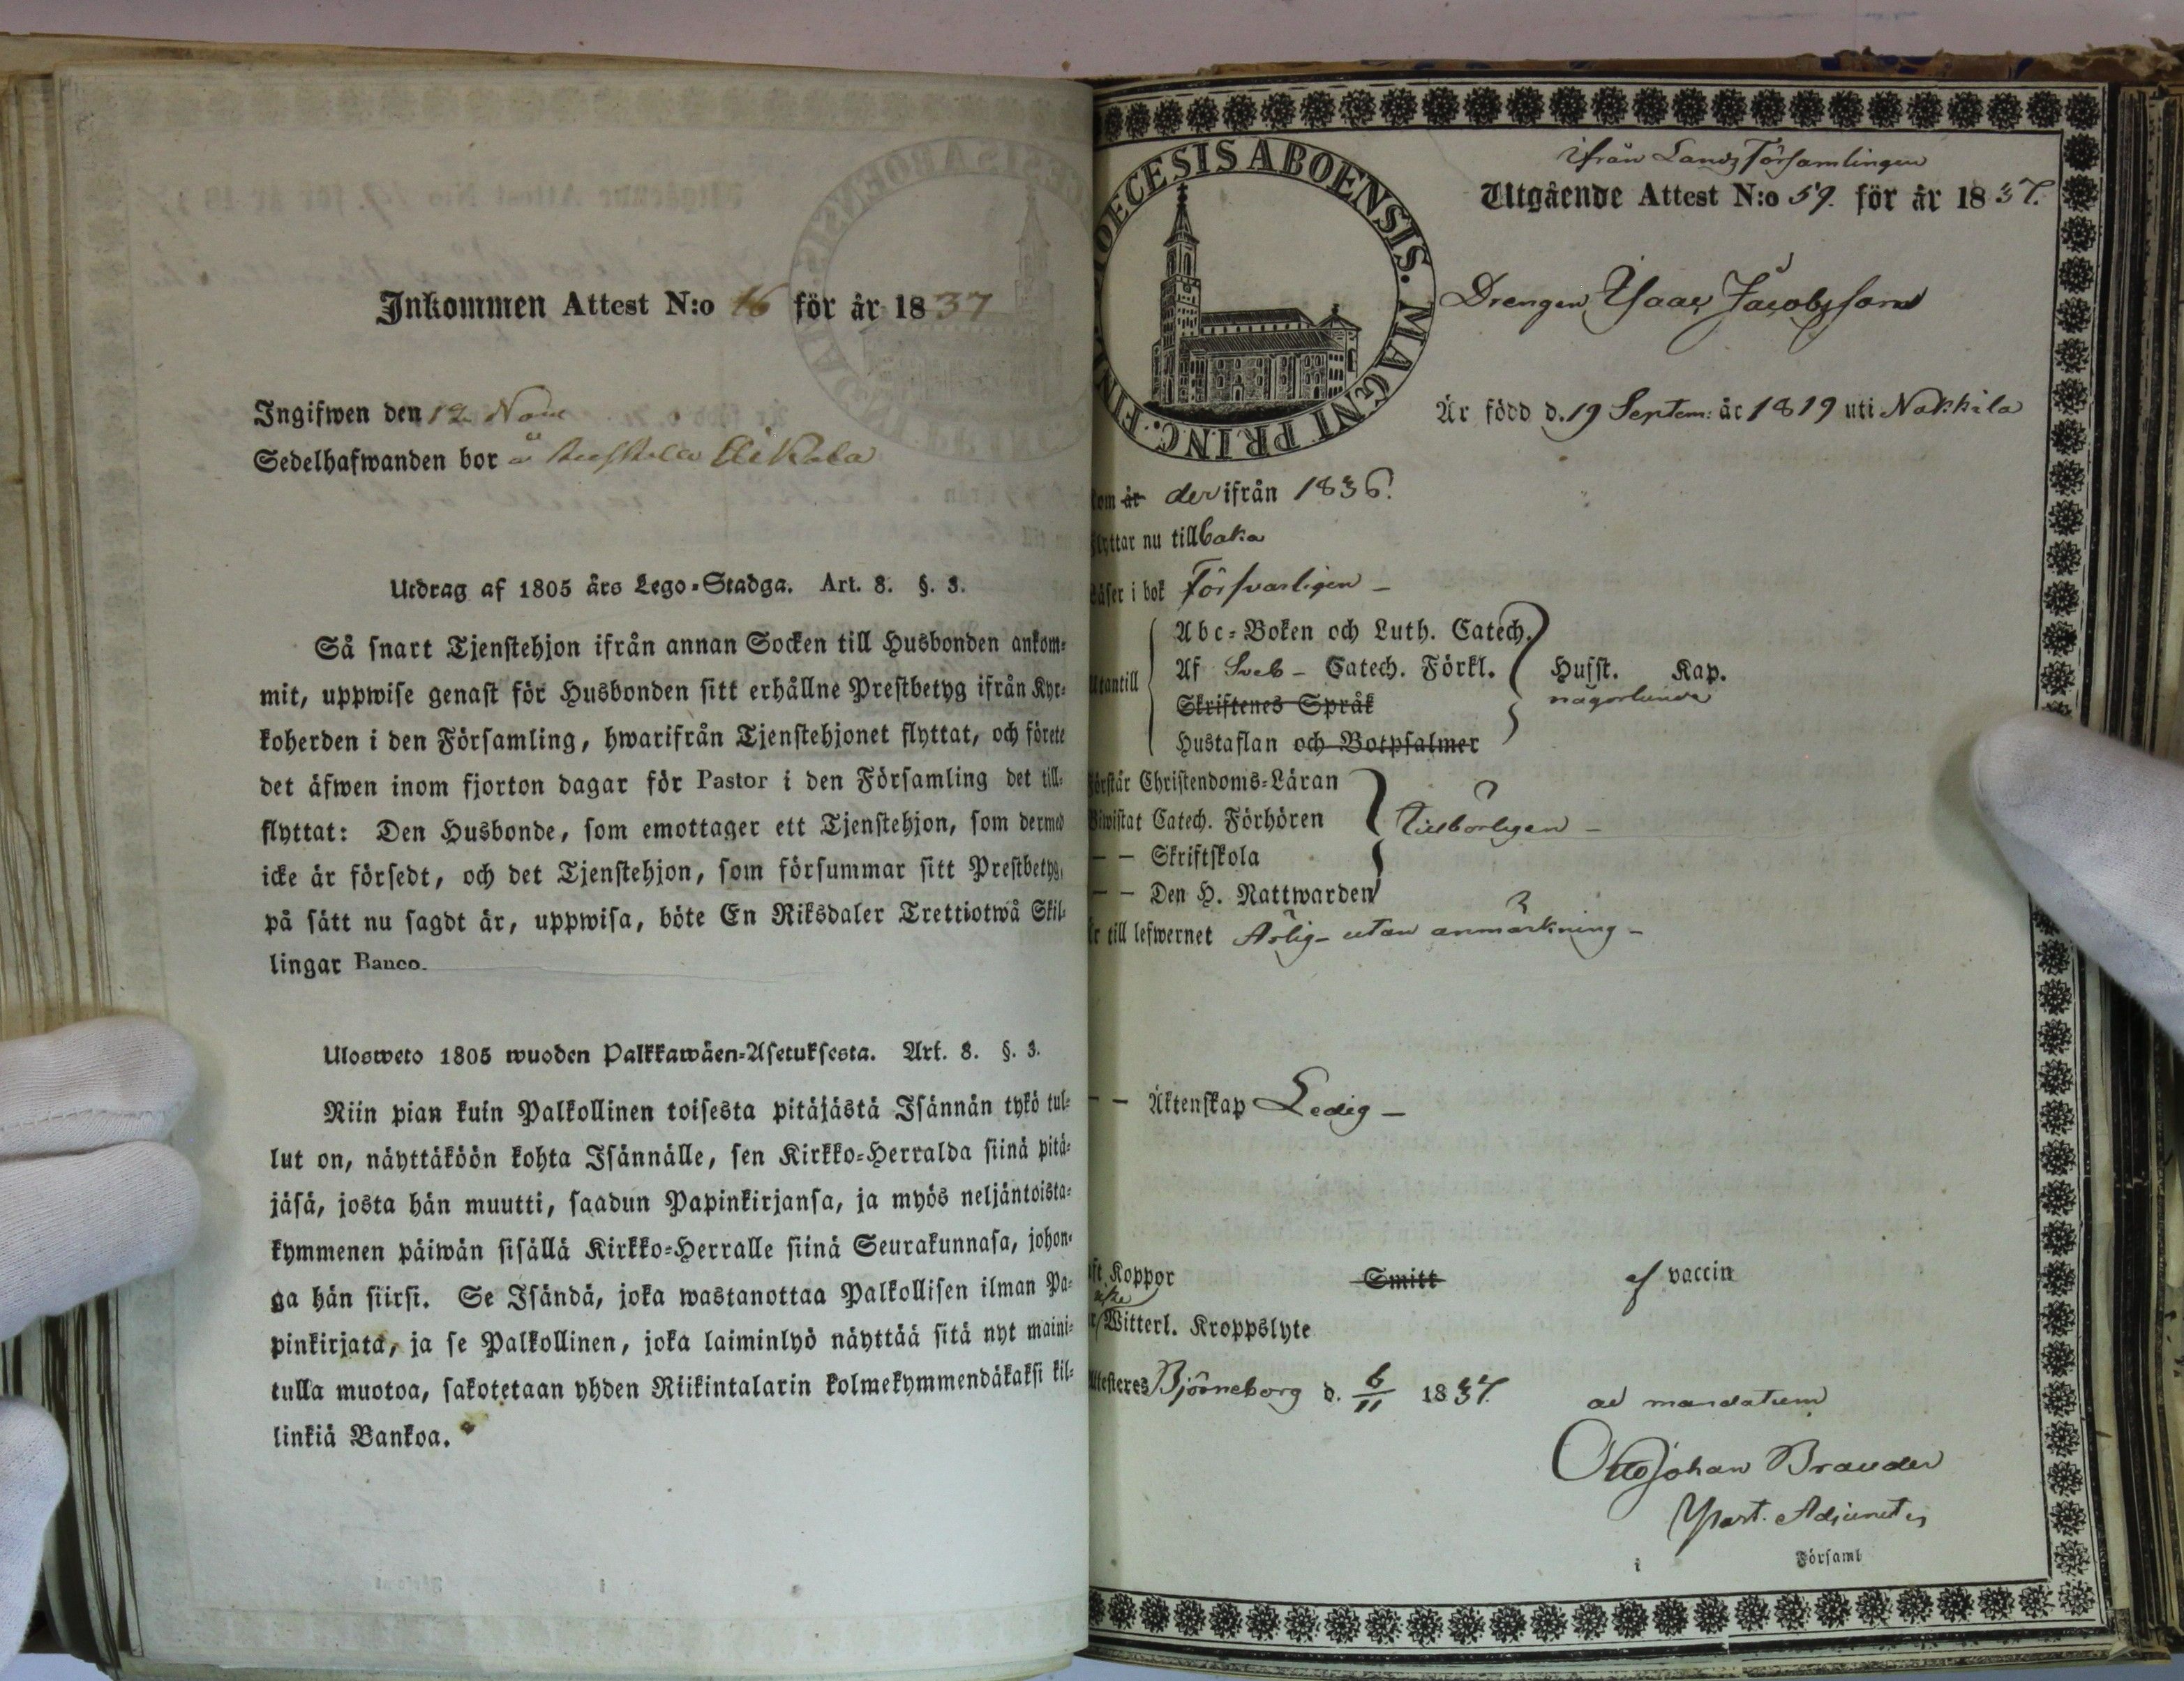 Inkommen Attest N:o 16 för år 1837
Ingifwen den 12 Nov
Sedelhafwanden bor å
Utdrag af 1805 års Lego-Stadga. Art. 8. §. 3.
Så snart Tjenstehjon ifrån annan Socken till Husbonden ankom-
mit, uppwise genast för Husbonden sitt erhållne Prestbetyg ifrån Kyr-
koherden i den Församling, hwarifrån Tjenstehjonet flyttat, och förete
det äfwen inom fjorton dagar för Pastor i den Församling det till-
flyttat: Den Husbonde, som emottager ett Tjenstehjon, som dermed
icke är försedt, och det Tjenstehjon, som försummar sitt Prestbetyg,
på sätt nu sagdt är, uppwisa, böte En Riksdaler Trettiotwå Skil-
lingar Banco.
Ulosweto 1805 wuoden Palkkawäen-Asetuksesta. Art. 8. §. 3.
Niin pian kuin Palkollinen toisesta pitäjästä Isännän tykö tul-
lut on, näyttäköön kohta Isännälle, sen Kirkko-Herralda siinä pitä-
jäsä, josta hän muutti, saadun Papinkirjansa, ja myös neljäntoista-
kymmenen päiwän sisällä Kirkko-Herralle siinä Seurakunnasa, johon-
ga hän siirsi. Se Isändä, joka wastanottaa Palkollisen ilman Pa-
pinkirjata, ja se Palkollinen, joka laiminlyö näyttää sitä nyt maini-
tulla muotoa, sakotetaan yhden Riikintalarin kolmekymmendäkaksi kil-
linkiä Bankoa.
OECESIS ABOENSIS. MAGNI PRINC. FIN
ifrån Landz Församlingen
Utgående Attest N:o 59. för år 1837.
Drengen Isaac Jacobsson
Är född d. 19 Septem: år 1819 uti Nakkila
kom är derifrån 1836.
flyttar nu tillbaka
Läser i bok Försvarligen –
Utantill
Abc-Boken och Luth. Catech.
Af Sveb – Catech. Förkl.
Husst. Kap.
någorlunda
Skriftenes Språk
Hustaflan och Botpsalmer
Förstår Christendoms-Läran
Biwistat Catech. Förhören
Tillbörligen –
— — Skriftskola
— — Den H. Nattwarden
Är till lefwernet Ärlig – utan anmärkning –
— — Äktenskap Ledig –
Koppor Smitt af vaccin
Witterl. Kroppslyte
Attesteres Björneborg d. 6/11 1837.
ad mandatum
Otto Johan Brander
Past. Adjunct
i Församl